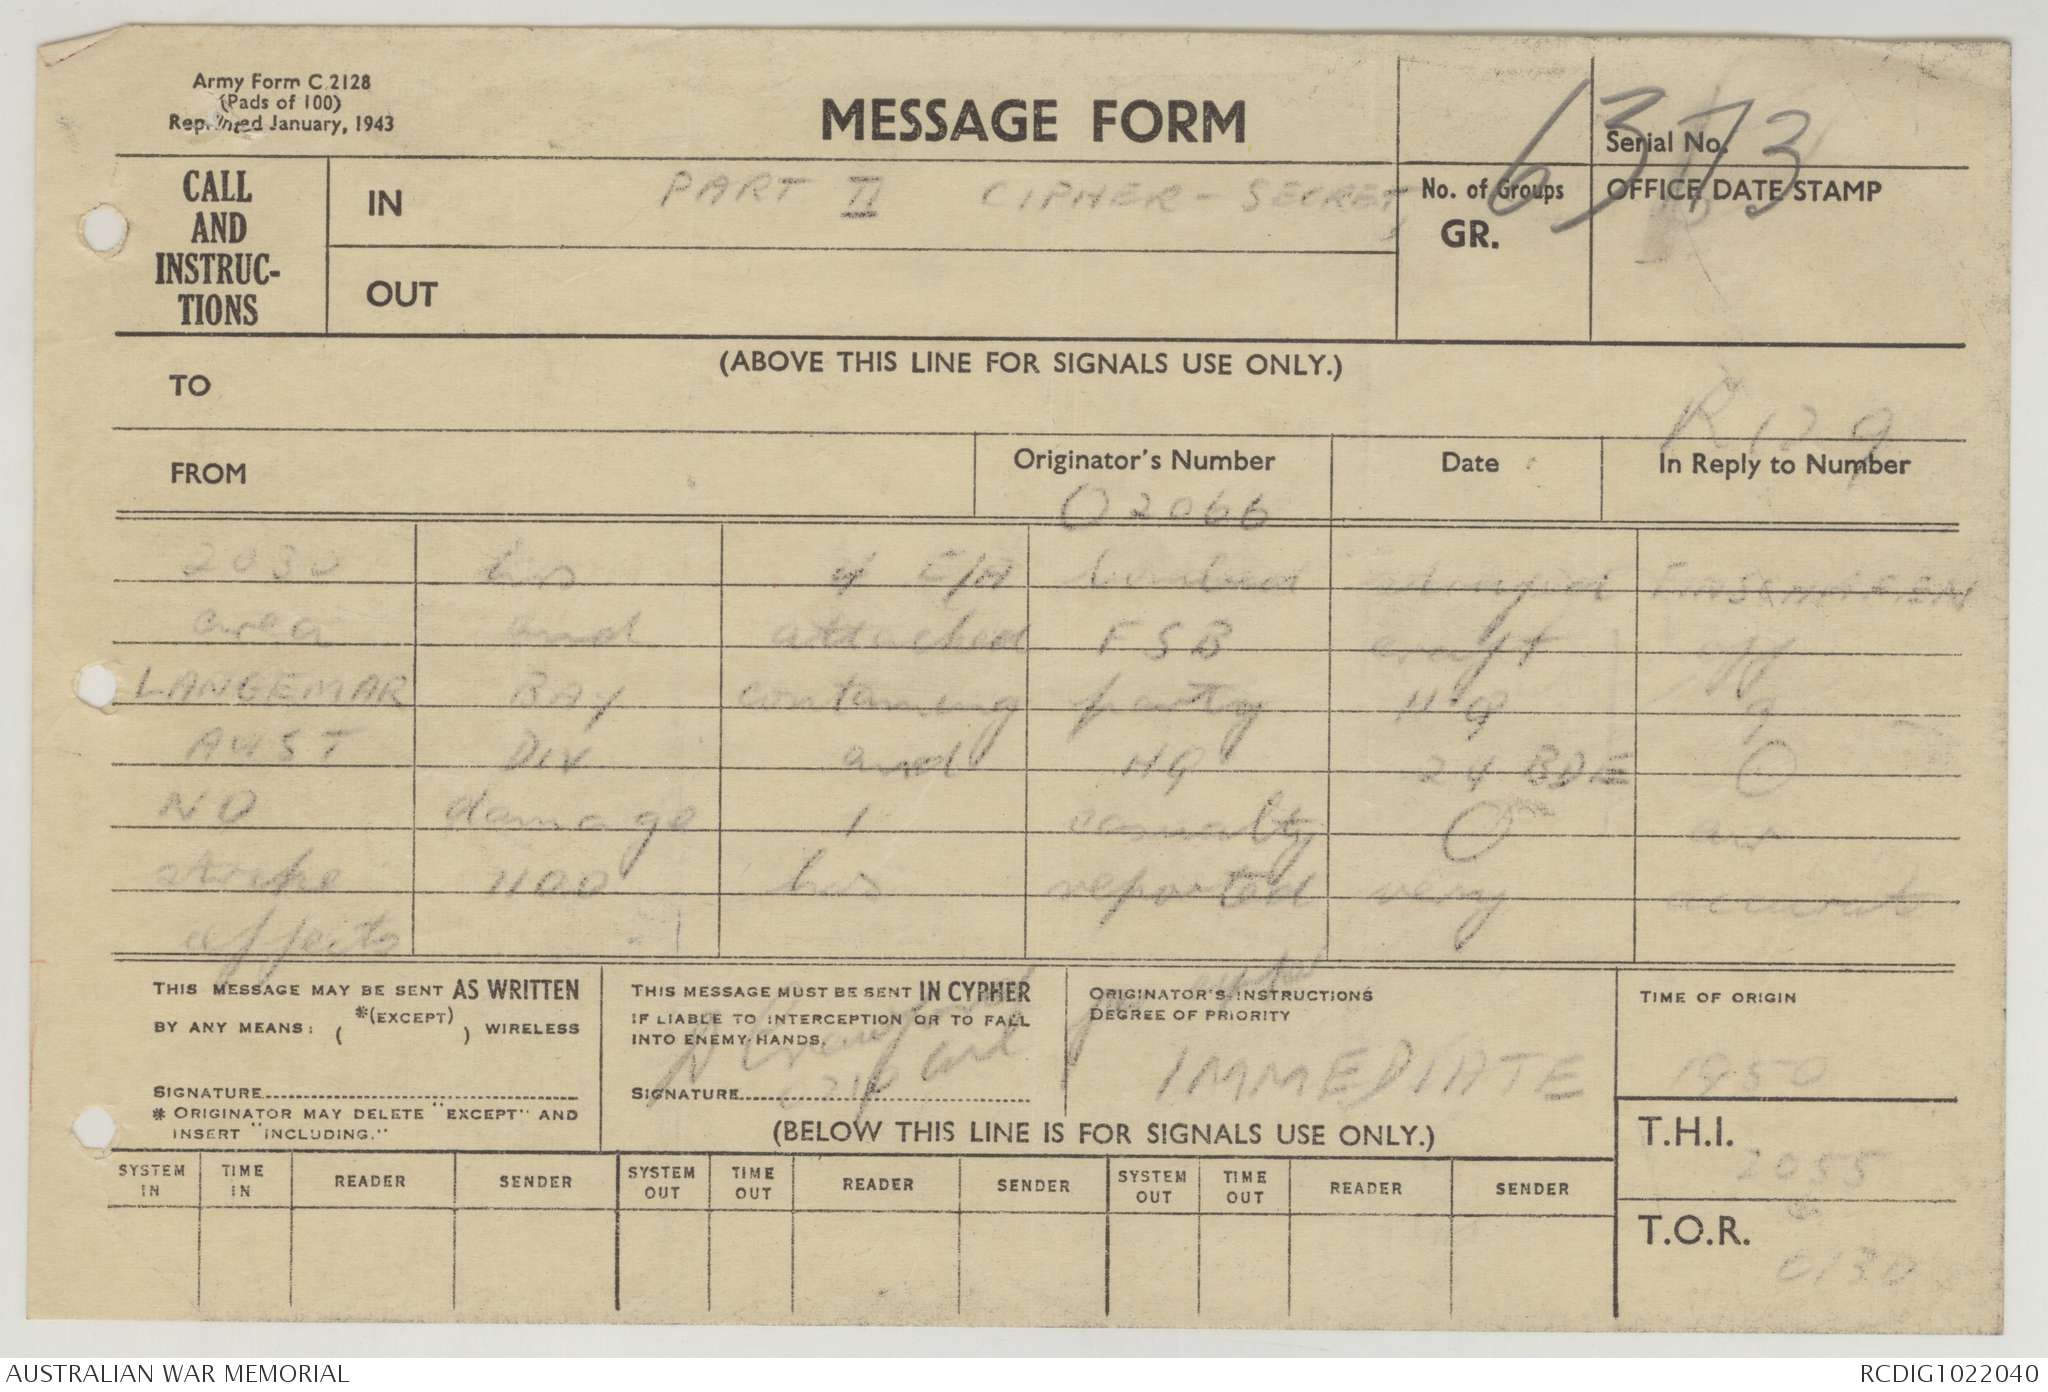 Army Form C 2128
(Pads of 100)
Reprinted January, 1943
MESSAGE FORM
6373
Serial No.
CALL
AND
INSTRUC-
TIONS
IN
PART II CIPHER - SECRET
No. of Groups
GR.
OFFICE DATE STAMP
OUT
(ABOVE THIS LINE FOR SIGNALS USE ONLY.)
TO
FROM
Originator's Number
O2066
Date
In Reply to Number
2030 hrs 4 E/A bombed FINSCHHAFEN
area and attacked FSB craft off
LANGEMAR BAY containing party HQ 9
AUST DIV and HQ 24 BDE O
NO damage 1 casualty O air
strike 1100 hrs reported very accurate
effects
THIS MESSAGE MAY BE SENT AS WRITTEN
BY ANY MEANS: ( *(EXCEPT) ) WIRELESS
SIGNATURE
* ORIGINATOR MAY DELETE "EXCEPT" AND
INSERT "INCLUDING."
THIS MESSAGE MUST BE SENT IN CYPHER
IF LIABLE TO INTERCEPTION OR TO FALL
INTO ENEMY HANDS.
SIGNATURE
ORIGINATOR'S INSTRUCTIONS
DEGREE OF PRIORITY
IMMEDIATE
TIME OF ORIGIN
1950
(BELOW THIS LINE IS FOR SIGNALS USE ONLY.)
T.H.I.
2055
SYSTEM IN TIME IN READER SENDER SYSTEM OUT TIME OUT READER SENDER SYSTEM OUT TIME OUT READER SENDER
T.O.R.
0130
AUSTRALIAN WAR MEMORIAL
RCDIG1022040